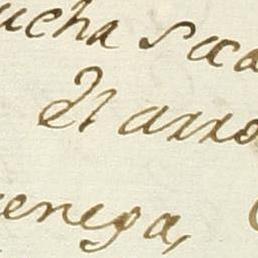 ucha saca
El arro
enega,